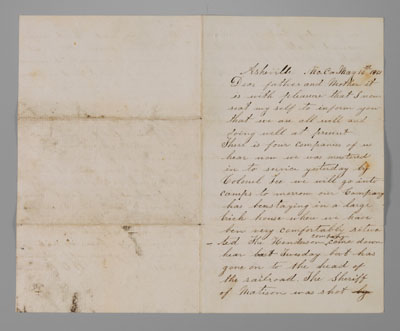 Asheville No. Ca May 16th 1861
Dear father and Mother it
is with pleasure that I now
seat my self to inform you
that we are all well and
doing well at present
There is four companies of us
hear now we was mustered
in to service yesterday by
Colonel Lee we will go into
camps to morrow our Company
has ben staying in a large
brick house where we have
ben very comfortably situa
ted The Henderson company came down
hear last Tuesday but has
gone on to the head of
the railroad. The Sheriff
of Matison was shot by